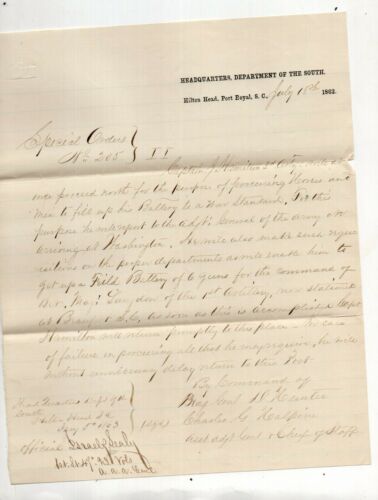 HEADQUARTERS, DEPARTMENT OF THE SOUTH.
Hilton Head, Port Royal, S. C., July 18th 1862.
Special Orders
No 205 II
Captain J Hamilton 3d Arty will at
once proceed north for the purpose of procuring Horses and
Men to fill up his Battery to a War Standard. For this
purpose he will report to the Adjt. General of the Army on
arriving at Washington. He will also make such requi
sitions on the proper departments as will enable him to
get up a Field Battery of 6 guns for the command of
Maj. Guy don of the 1st Artillery, now stationed
at S.C. as soon as this is accomplished Capt
Hamilton will return promptly to this place. In case
of failure in procuring all that he may require, he will
without unnecessary delay return to this Post.
By Command of
Brig Genl D. Hunter
Head Quarters Dept of the
South
Hilton Head S.C.
1863
signed
Charles G. Halpine
Asst adjt Genl & Chief of Staff
Official
Israel Sealy
1st Lt 47th NY Vols
a. a. a. Genl